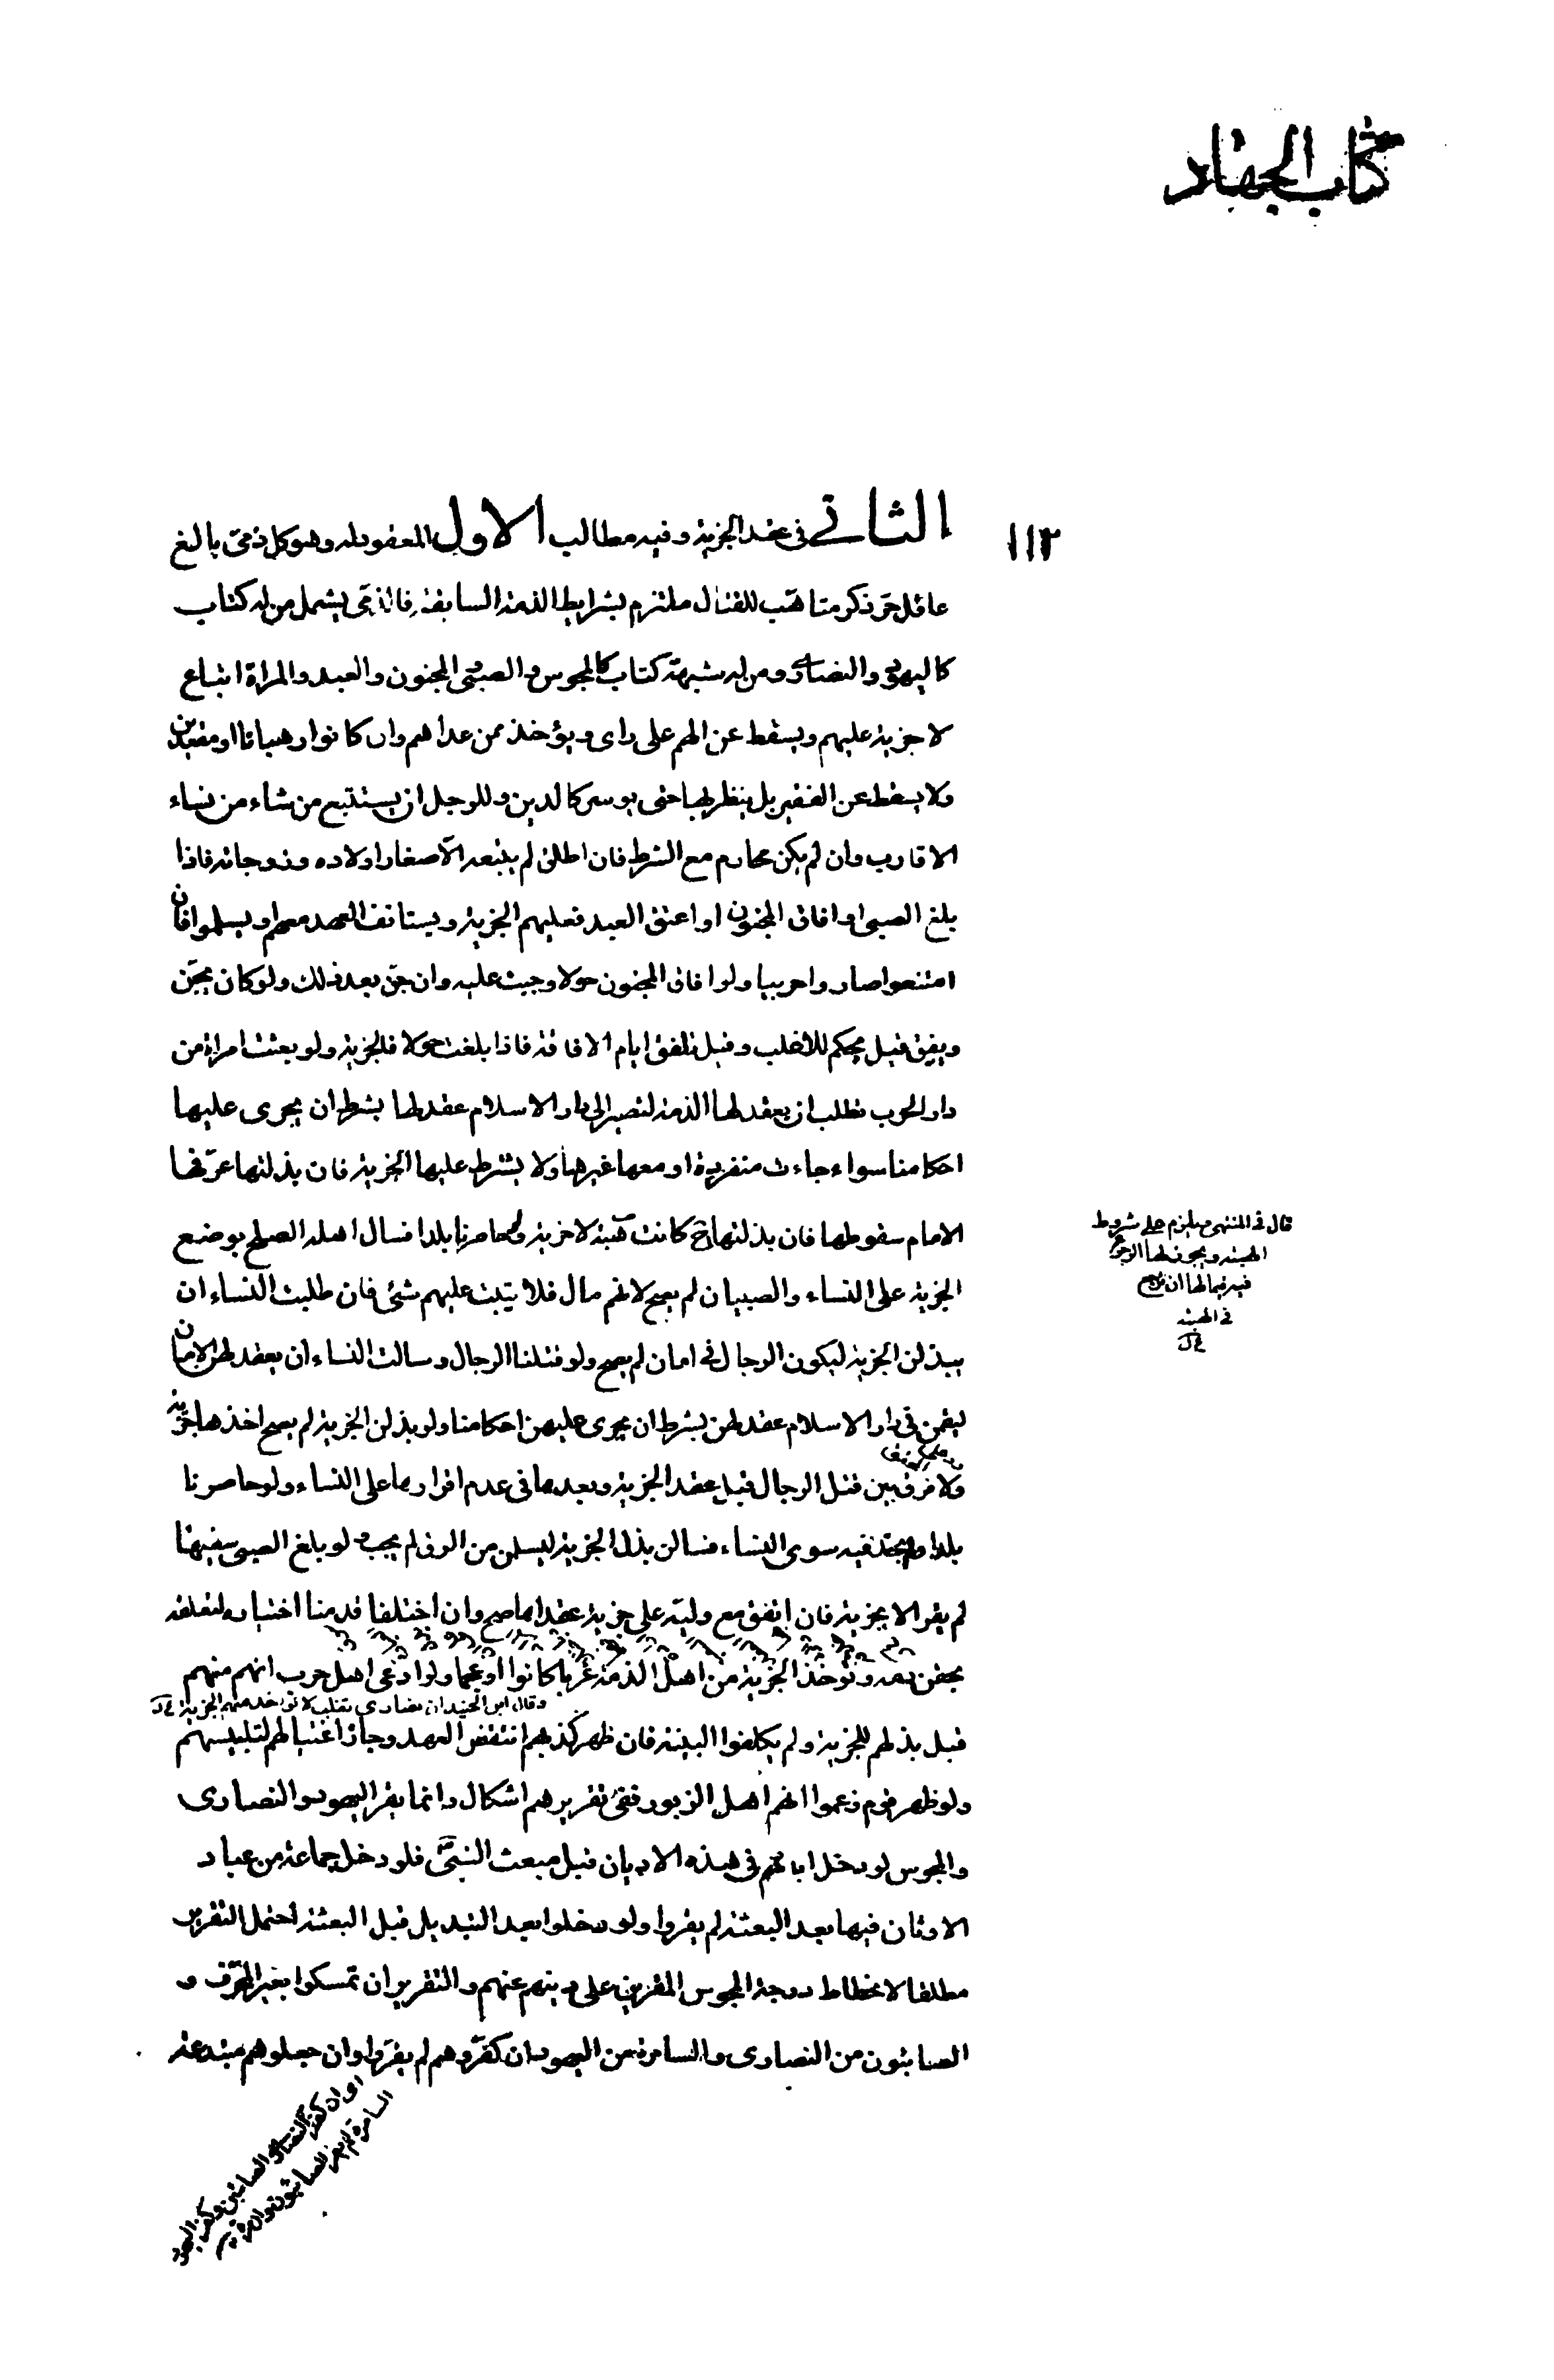 كتاب الجهاد
١١٢
الثاني في عقد الجزية وفيه مطالب الاول المعقود له وهو كل ذمي بالغ
عاقل حر ذكر متاهب للقتال ملتزم بشرايط الذمة السابقة فالذمي يشمل من له كتاب
كاليهود والنصارى ومن له شبهة كتاب كالمجوس والصبي والمجنون والعبد والمراة اتباع
لا جزية عليهم ويسقط عن الهم على راى ويؤخذ ممن عداهم وان كانوا رهبانا او مقعدين
ولا يسقط عن الفقير بل ينظر بها حتى يوسر كالدين وللرجل ان يستتبع من شاء من نساء
الاقارب وان لم يكن محارم مع الشرط فان اطلق لم يتبعه الا صغار اولاده وزوجاته فاذا
بلغ الصبي او افاق المجنون او اعتق العبد فعليهم الجزية ويستانف العهد معهم او يسلموا فان
امتنعوا صاروا حربيا ولو افاق المجنون حولا وجبت عليه وان جن بعد ذلك ولو كان يجن
ويفيق قيل يحكم للاغلب وقيل تلفق ايام الافاقة فاذا بلغت حولا فالجزية ولو بعثت امراة من
دار الحرب تطلب ان يعقد لها الذمة لتصير الى دار الاسلام عقد لها بشرط ان يجرى عليها
احكامنا سواء جاءت منفردة او معها غيرها ولا يشترط عليها الجزية فان بذلتها عرفها
الامام سقوطها فان بذلتها ح كانت هبة لا جزية ولو حاصرنا بلدا فسال اهله الصلح بوضع
الجزية على النساء والصبيان لم يصح لانهم مال فلا يثبت عليهم شئ فان طلبت النساء ان
يبذلن الجزية ليكون الرجال في امان لم يصح ولو قتلنا الرجال وسالت النساء ان يعقد لهن الامان
ليقمن في دار الاسلام عقد لهن بشرط ان يجرى عليهن احكامنا ولو بذلن الجزية لم يصح اخذها جزية
ولا فرق بين قتل الرجال قبل عقد الجزية وبعدها في عدم اقرارها على النساء ولو حاصرنا
بلدا ولم نجد فيه سوى النساء فسالن بذل الجزية ليسلمن من الرق لم يجب ولو بلغ الصبي سفيها
لم يقر الا بجزية فان اتفق مع وليه على جزية عقداها صح وان اختلفا قدمنا اختياره لتعلقه
بحقن دمه وتوخذ الجزية من اهل الذمة عربا كانوا او عجما ولو ادعى اهل حرب انهم منهم
وقال ابن الجنيد ان نصارى تغلب لا تؤاخذ منهم الجزية
قبل بذلهم للجزية ولم يكلفوا البينة فان ظهر كذبهم انتقض العهد وجاز اغتيالهم لتلبيسهم
ولو ظهر قوم زعموا انهم اهل الزبور ففي تقريرهم اشكال وانما يقر اليهود والنصارى
والمجوس لو دخل اباؤهم في هذه الاديان قبل مبعث النبي فلو دخل جماعة من عباد
الاوثان فيها بعد البعثة لم يقروا ولو دخلوا بعد التبديل قبل البعثة احتمل التقرير
مطلقا لانحطاط درجة المجوس المقرين على دينهم عنهم والتقرير ان تمسكوا بغير المحرف و
الصابئون من النصارى والسامرة من اليهود ان كفروهم لم يقروا وان جعلوهم مبتدعة
اى ان كفر النصارى الصابئين وكفر اليهود
السامرة لم يقر الصابئون
قال في المنتهى ويلزم على شروط
الهبة ويجوز لها الرجوع
فيه فيما لها ان ترجع
في الهبة